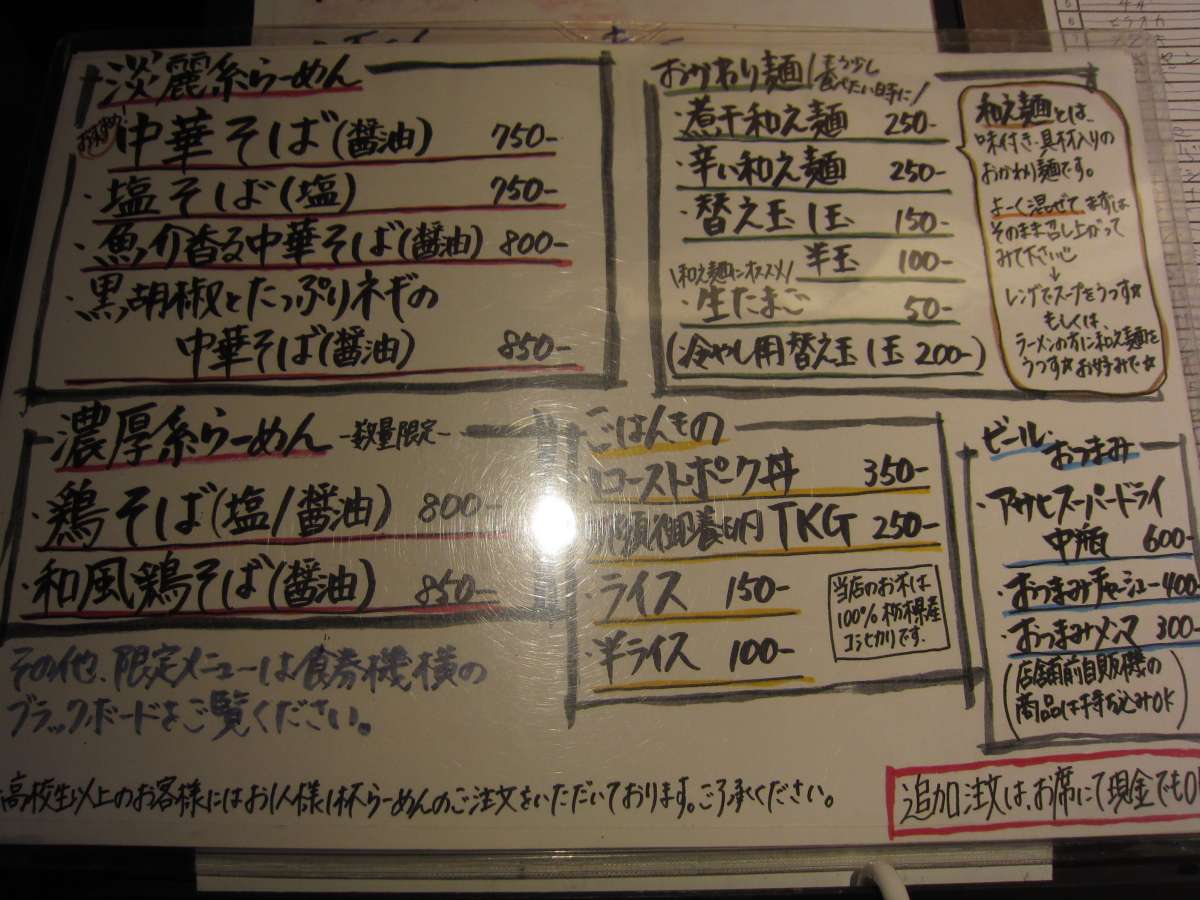 淡麗系らーめん
おすすめ!
中華そば(醤油) 750-
・塩そば(塩) 750-
・魚介香る中華そば(醤油) 800-
・黒胡椒とたっぷりネギの
中華そば(醤油) 850-
濃厚系らーめん -数量限定-
・鶏そば(塩/醤油) 800-
・和風鶏そば(醤油) 850-
その他、限定メニューは食券機横の
ブラックボードをご覧ください。
おかわり麺
もう少し
食べたい時に
・煮干和え麺 250-
・辛い和え麺 250-
・替え玉1玉 150-
半玉 100-
和え麺にオススメ
・生たまご 50-
(冷やし用替え玉1玉200-)
和え麺とは、
味付き・具材入りの
おかわり麺です。
よーく混ぜてまずは
そのまま召し上がって
みて下さい
↓
レンゲでスープをうつす☆
もしくは、
ラーメンの方に和え麺を
うつす☆お好みで☆
ごはんもの
ローストポーク丼 350-
TKG 250-
・ライス 150-
・半ライス 100-
当店のお米は
100%栃木県産
コシヒカリです。
ビール・
おつまみ
・アサヒスーパードライ
中瓶 600-
・おつまみチャーシュー 400
・おつまみメンマ 300-
(店舗前自販機の
商品は持ち込みOK)
高校生以上のお客様にはお1人様1杯らーめんのご注文をいただいております。ご了承ください。
追加注文は、お席にて現金でも